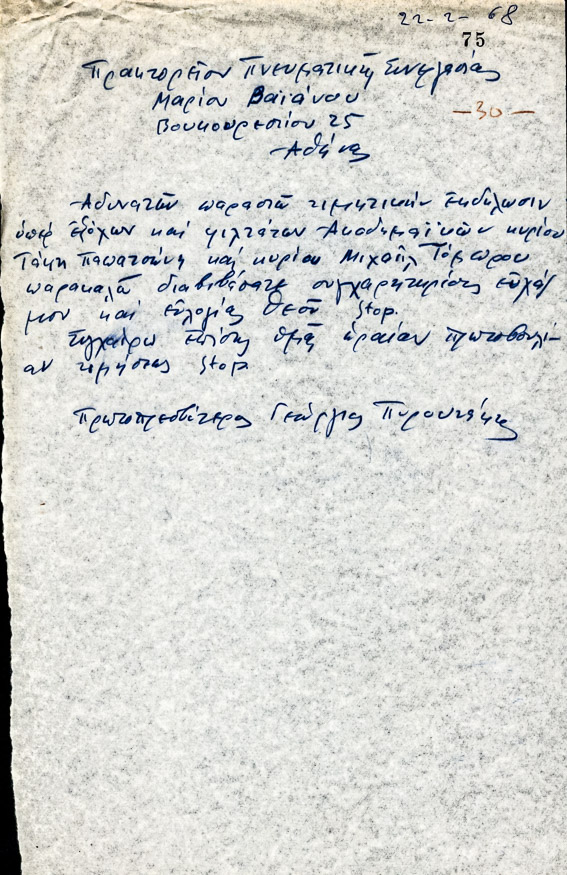 22-2-68
75
Πρακτορεῖον Πνευματικῆς Συνεργασίας
Μαρίου Βαϊάνου
—30—
Βουκουρεστίου 25
Ἀθήνας
Ἀδυνατῶν παραστῶ τιμητικὴν ἐκδήλωσιν
ὑπὲρ ἐξόχων καὶ φιλτάτων Ἀκαδημαϊκῶν κυρίου
Τάκη Παπατσώνη καὶ κυρίου Μιχαὴλ Τόμπρου
παρακαλῶ διαβιβάσατε συγχαρητηρίους εὐχάς
μου καὶ εὐλογίας Θεοῦ Stop.
Συγχαίρω ἐπίσης ὑμᾶς ὡραίαν πρωτοβουλί-
αν τιμήσεως Stop.
Πρωτοπρεσβύτερος Γεώργιος Πυρουνάκης